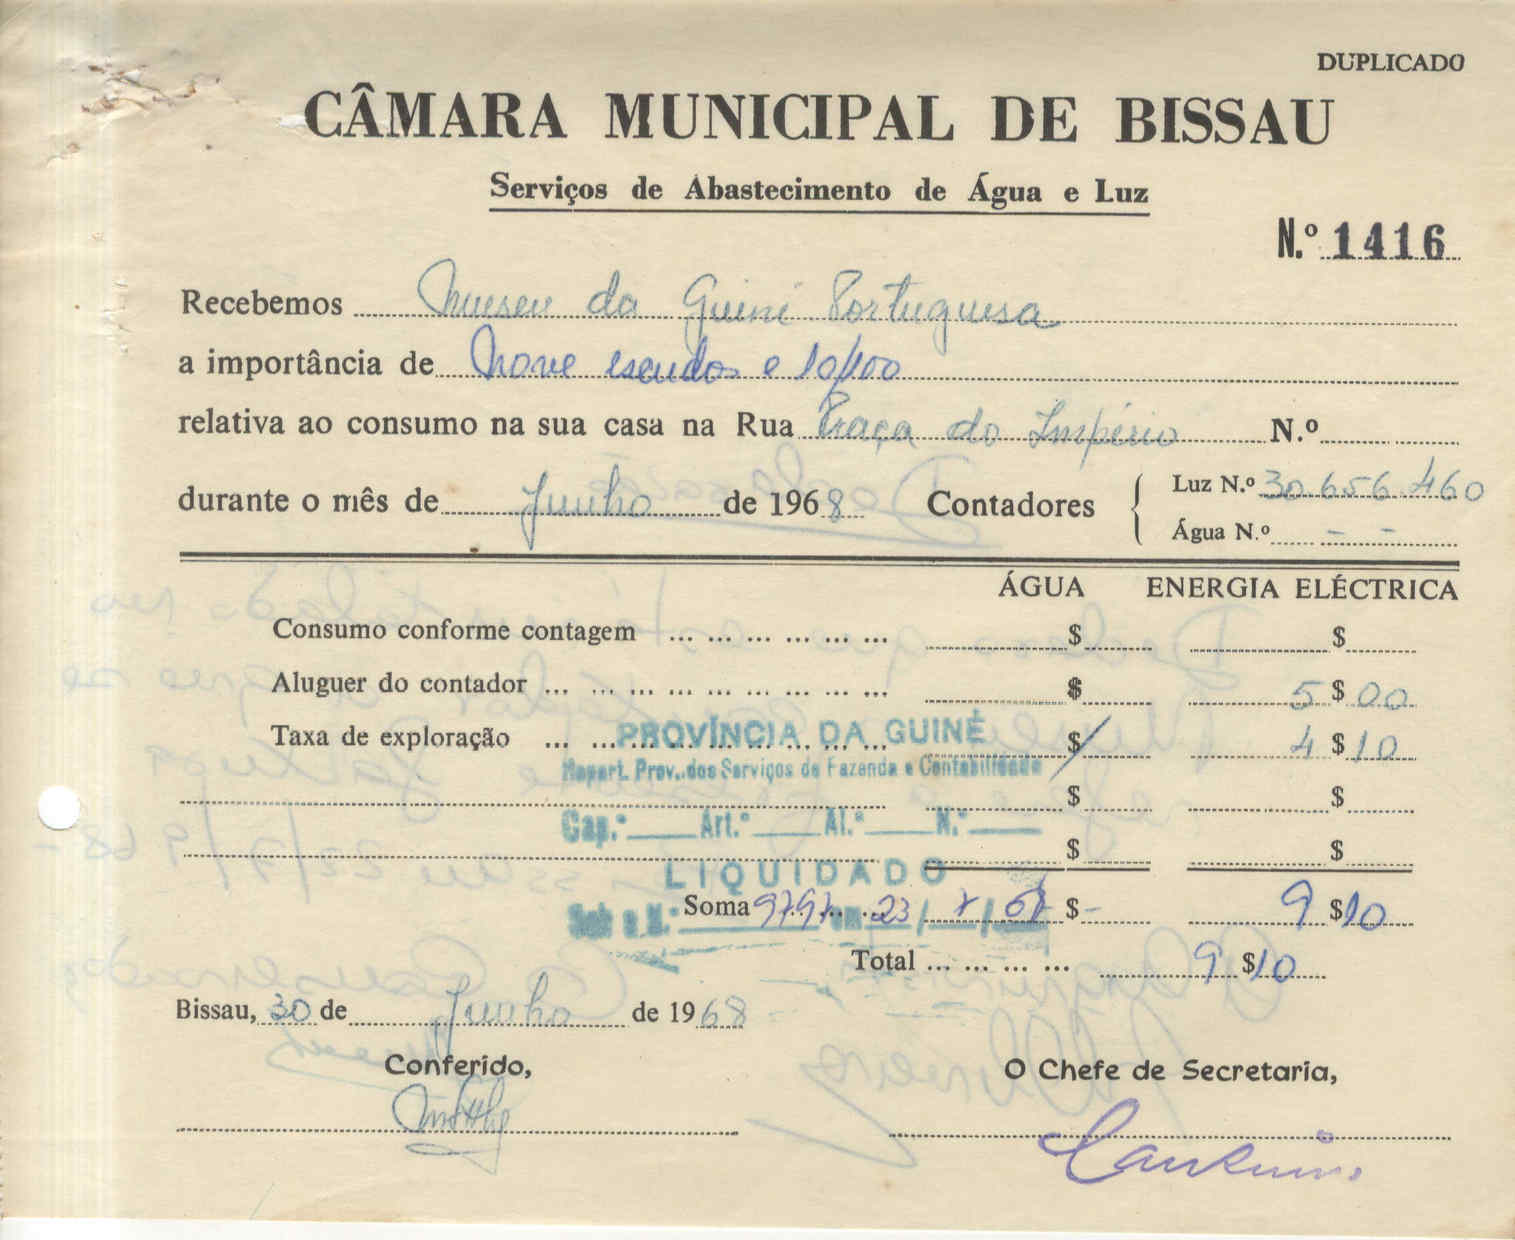 DUPLICADO
CÂMARA MUNICIPAL DE BISSAU
Serviços de Abastecimento de Água e Luz
N.º 1416
Recebemos Museu da Guiné Portuguesa
a importância de Nove escudos e 10/100
relativa ao consumo na sua casa na Rua Praça do Império N.º
durante o mês de Junho de 1968 Contadores
Luz N.º 30.656.460
Água N.º - -
ÁGUA ENERGIA ELÉCTRICA
Consumo conforme contagem ... ... ... ... ... ... $ $
Aluguer do contador ... ... ... ... ... ... ... ... ... $ 5 $ 00
Taxa de exploração ... ... ... ... ... ... ... ... ... $ 4 $ 10
PROVÍNCIA DA GUINÉ
Repart. Prov. dos Serviços de Fazenda e Contabilidade
$ $
Cap.º Art.º Al.ª N.º
$ $
LIQUIDADO
Soma $ - 9 $ 10
Sob o N.º 9797 em 23 / 7 / 68
Total ... ... ... ... 9 $ 10
Bissau, 30 de Junho de 1968
Conferido,
O Chefe de Secretaria,